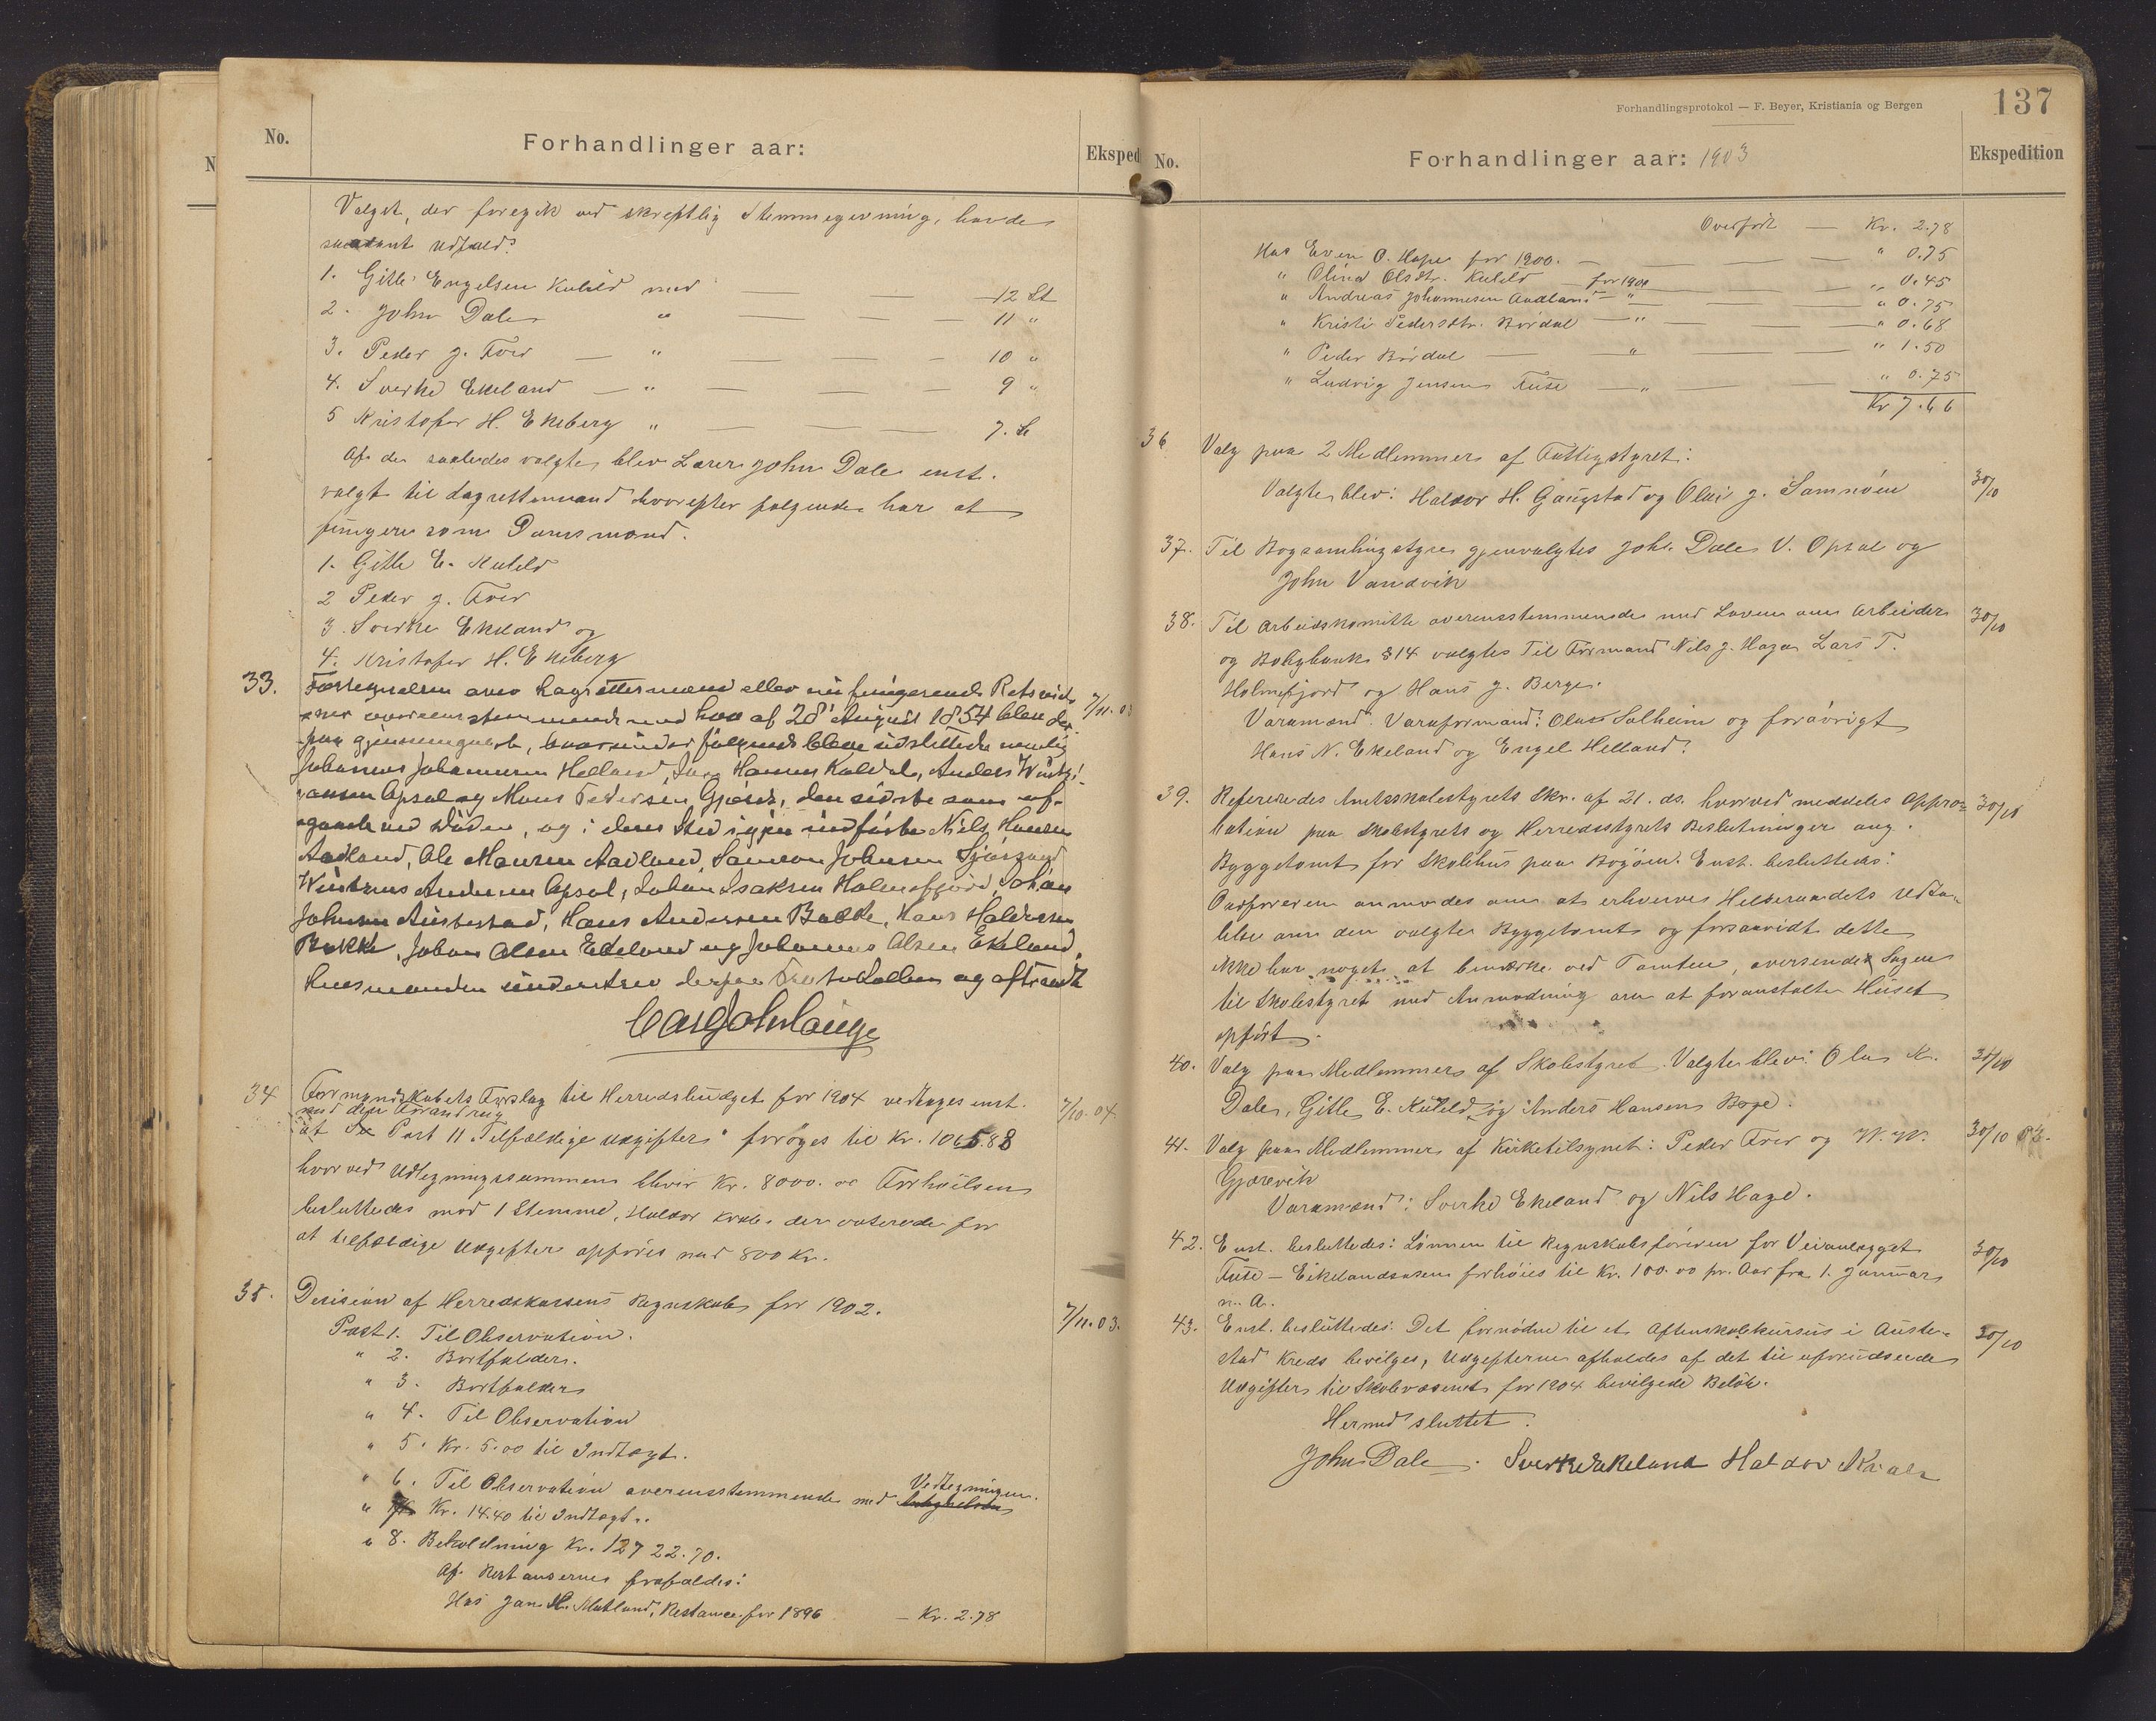 No.
Forhandlinger aar:
Eksped
Valget, der foregik ved skriftlig Stemmegivning, havde
saadant Udfald:
1. Gitle Engelsen Kuleld med — — 12 St
2. John Dale " — — 11 "
3. Peder J. Tver — " — — 10 "
4. Sverke Ekeland — " — — 9 "
5 Kristofer H. Ekeberg " — — — 7. St
Af de saaledes valgte blev Lærer John Dale enst.
valgt til Lagrettemand hvorefter følgende har at
fungere som Domsmænd.
1. Gitle E. Kuleld
2 Peder J. Tver
3. Sverke Ekeland og
4. Kristofer H. Ekeberg
33.
Fortegnelsen over Lagrettemænd eller nu fungerende Retsvid-
ner overensstemmende med Lov af 28' August 1854 blev der-
paa gjennemgaaet, hvorunder følgende bleve udslettede nemlig
Johannes Johannesen Helland, Hansen Koldal, Anders
Opsal og Mons Pedersen Gjøsch, den sidste som af-
gaaet ved Døden, og i deres Sted igjen indførte Niels Hansen
Aadland, Ole Monsen Aadland, Samson Johnsen
Andersen Opsal, Johan Isaksen Holmefjord, Johan
Johnsen Austestad, Hans Andersen Bolstad, Hans Haldorsen
Bakke, Johan Olsen Ekeland og Johannes Olsen Ekeland.
Lensmanden underskrev derpaa Protokollen og aftraadte
7/11-03
Carl Joh Lange
34
Formandskabets Forslag til Herredsbudget for 1904 vedtages enst.
med den Forandring
at Post 11 "Tilfældige Udgifter" forøges til Kr. 1065.88
hvorved Udligningssummen bliver Kr. 8000.00 Forhøielsen
besluttedes mod 1 Stemme, Haldor Kvale der voterede for
at tilfældige Udgifter opføres med 800 Kr.
7/10-04
35.
Desision af Herredskassens Regnskab for 1902.
7/11.03.
Post 1. Til Observation.
" 2. Bortfalder.
" 3. Bortfalder
" 4. Til Observation
" 5. Kr. 5.00 til Indtægt.
" 6. Til Observation overensstemmende med Vedtegningen.
" 7 Kr. 14.40 til Indtægt.
" 8. Beholdning Kr. 12722.70.
Af Restanserne frafaldes:
Hos Jan H. Matland, Restance for 1896 — Kr. 2.78
Forhandlingsprotokol — F. Beyer, Kristiania og Bergen
137
No.
Forhandlinger aar: 1903
Ekspedition
Overført — Kr. 2.78
Hos Even O. Hope for 1900. — " 0.75
" Olina Olsdtr. Kuleld for 1900 — " 0.45
" Andreas Johannesen Aadland — " — " 0.75
" Kristi Pedersdtr. Bördal — " — " 0.68
" Peder Bördal — " — " 1.50
" Ludvig Jensen Fuse — " — " 0.75
Kr 7.66
36
Valg paa 2 Medlemmer af Fattigstyret:
Valgte blev: Haldor H. Gaugstad og Olai J. Samnöen
30/10
37.
Til Bogsamlingstyre gjenvalgtes Johs. Dale, V. Opsal og
John Vandvik
38.
Til Arbeidskomitte overensstemmende med Loven om Arbeider
og Boligbank §14 valgtes Til Formand Nils J. Haga Lars T.
Holmefjord og Hans J. Berge.
Varamænd: Varaformand: Olas Solheim og forøvrigt
Hans N. Ekeland og Engel Helland.
30/10
39.
Refereredes Amtsskolestyrets Skr. af 21. ds. hvorved meddeles Appro-
bation paa Skolestyrets og Herredsstyrets Beslutninger ang.
Byggetomt for Skolehus paa Bogöen. Enst. besluttedes:
Ordføreren anmodes om at erhverve Helseraadets Udta-
lelse om den valgte Byggetomt og forsaavidt dette
ikke har noget at bemærke ved Tomten, oversendes Sagen
til Skolestyret med Anmodning om at foranstalte Huset
opført.
30/10
40.
Valg paa Medlemmer af Skolestyret. Valgte blev: Olas K.
Dale, Gitle E. Kuleld og Anders Hansen Boge.
30/10
41.
Valg paa Medlemmer af Kirketilsynet: Peder Tver og N. N.
Gjærevik
Varamænd: Sverke Ekeland og Nils Hage.
30/10 03.
42.
Enst. besluttedes: Lønnen til Regnskabsføreren for Veianlægget
Fuse – Eikelandsosen forhöies til Kr. 100.00 pr. Aar fra 1. Januar
n. A.
30/10
43.
Enst. besluttedes: Det fornødne til et Aftenskolekursus i Auste-
stad Kreds bevilges, Udgifterne afholdes af det til uforudseede
Udgifter til Skolevæsenet for 1904 bevilgede Beløb.
30/10
Hermed sluttet.
John Dale. Sverke Ekeland Haldor Kvale